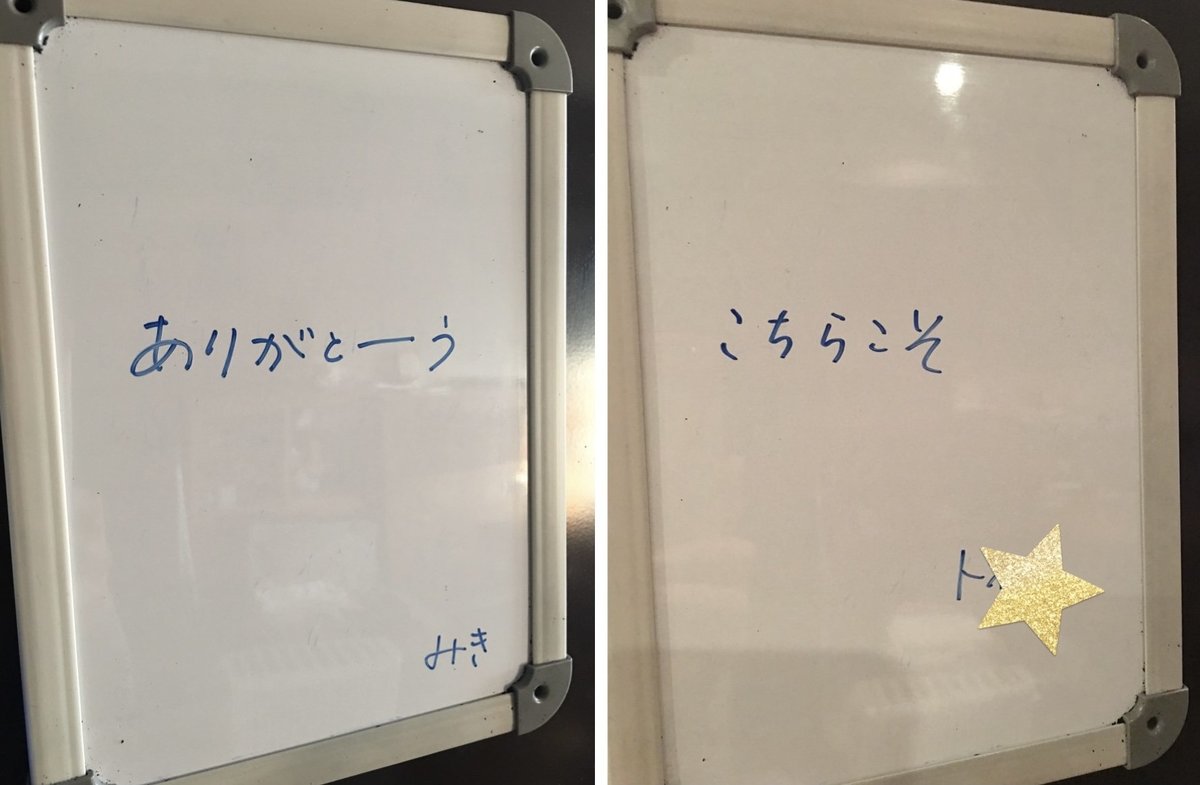 ありがとーう
みき
こちらこそ